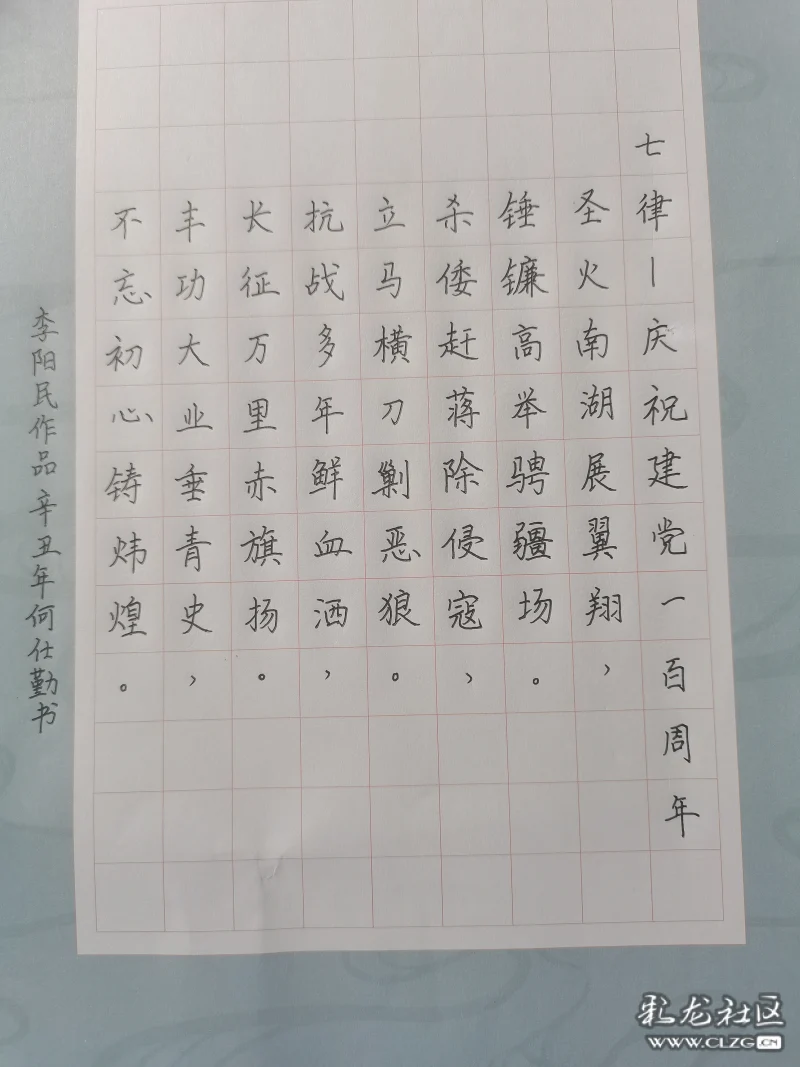 七律一庆祝建党一百周年
圣火南湖展翼翔，
锤镰高举骋疆场。
杀倭赶蒋除侵寇，
立马横刀剿恶狼。
抗战多年鲜血洒，
长征万里赤旗扬。
丰功大业垂青史，
不忘初心铸炜煌。
李阳民作品辛丑年何仕勤书
彩龙社区
WWW.CLZG.CN